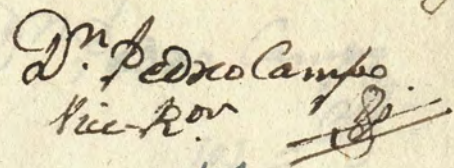 Dn. Pedro Campo.
Vice-Ror.